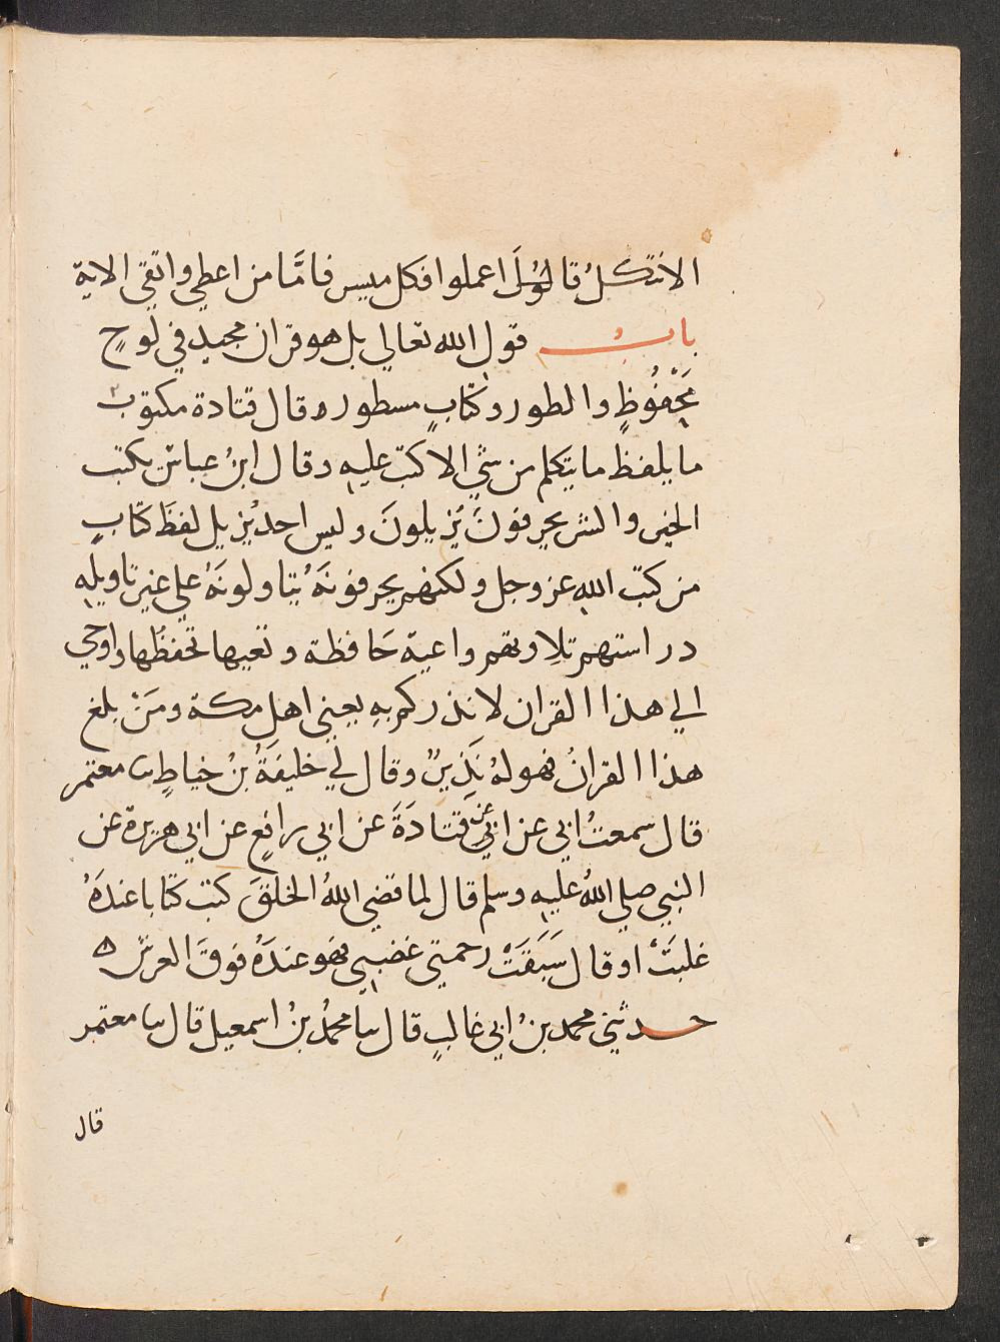 الا نتكلُ قال اعملوا فكل ميسر فامَّا من اعطي واتقي الاية
بابُ قول الله تعالي بل هو قران مجيد في لوحٍ
مَحْفُوظٍ والطور وكتابٍ مسطور وقال قتادة مكتوب
ما يلفظ ما يتكلم من شي الا كتب عليه وقال ابنُ عباس يكتب
الخير والشر يحرفونَ يُزيلونَ وليس احد يُزيل لفظَ كتابٍ
من كتب الله عز وجل ولكنهم يحرفونَهُ يتاولونَهُ علي غير تاويله
دراستهم تلاوتهم واعية حَافظة وتعيها تحفظُها واوحي
الي هذا القران لانذركم بهِ يعني اهل مكة ومَنْ بلغ
هذا القرانُ فهو لهُ نَذِيرٌ وقال لي خليفَةُ بنُ خياطٍ ثنا معتمر
قال سمعتُ ابي عن قتادَةَ عن ابي رافعٍ عن ابي هريرة عن
النبي صلي اللهُ عليه وسلم قال لما قضي اللهُ الخلقَ كتب كتابا عندَهُ
غلبَتْ او قال سَبَقَتْ رحمتي غضبي فهو عندَهُ فوقَ العرش ه
حدثني محمد بنُ ابي غالبٍ قال ثنا محمدُ بنُ اسمعيل قال ثنا معتمر
قال